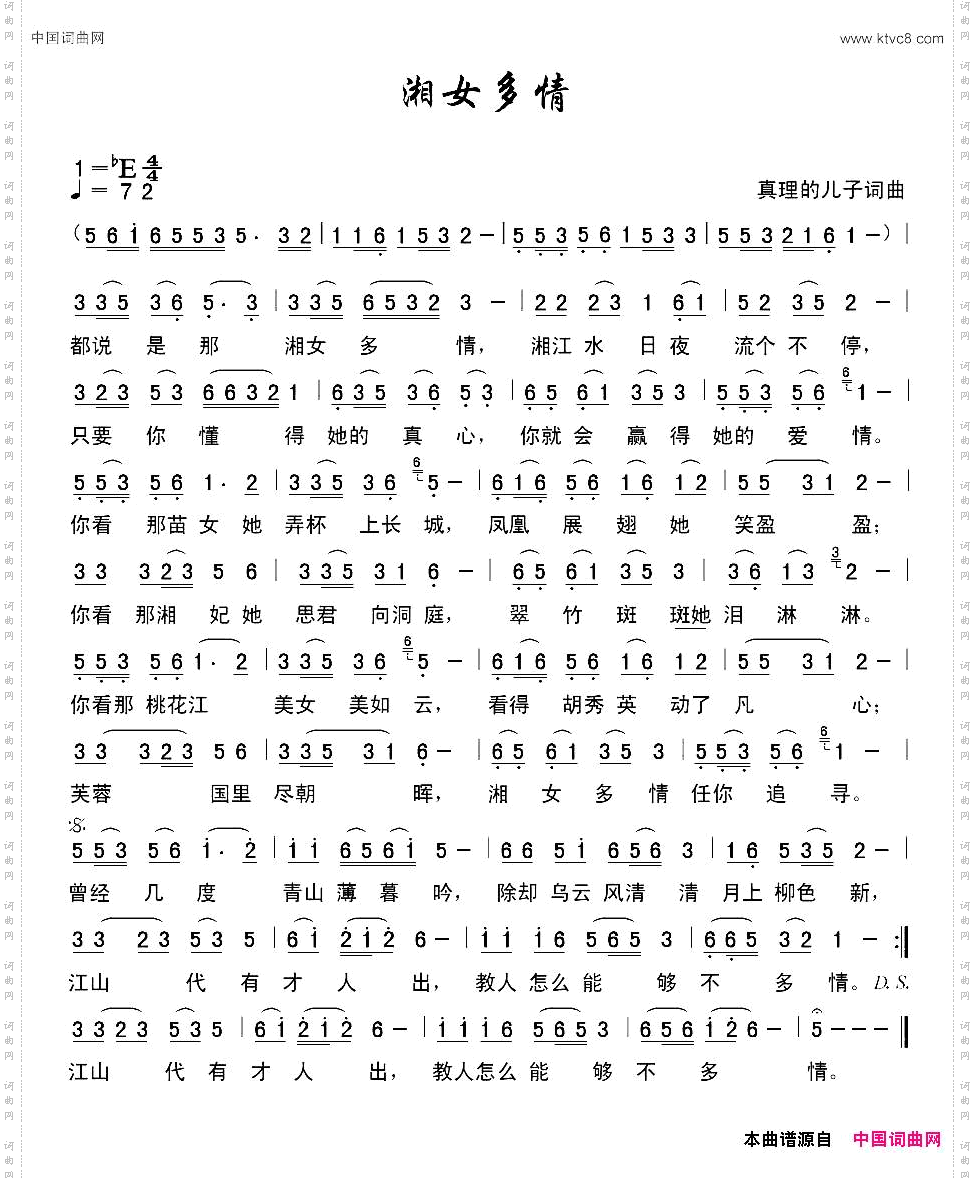 中国词曲网 www.ktvc8.com
湘女多情
1=♭E 4/4
♩=72
真理的儿子词曲
(5 6 1 6 5 5 3 5. 3 2 | 1 1 6 1 5 3 2 - | 5 5 3 5 6 1 5 3 3 | 5 5 3 2 1 6 1 - ) |
3 3 5 3 6 5. 3 | 3 3 5 6 5 3 2 3 - | 2 2 2 3 1 6 1 | 5 2 3 5 2 - |
都说 是 那 湘女 多 情， 湘江 水 日 夜 流个 不 停，
3 2 3 5 3 6 6 3 2 1 | 6 3 5 3 6 5 3 | 6 5 6 1 3 5 3 | 5 5 3 5 6 6 1 - |
只要 你 懂 得 她的 真 心， 你就 会 赢 得 她的 爱 情。
5 5 3 5 6 1. 2 | 3 3 5 3 6 6 5 - | 6 1 6 5 6 1 6 1 2 | 5 5 3 1 2 - |
你看 那苗 女 她 弄杯 上长 城， 凤凰 展 翅 她 笑盈 盈；
3 3 3 2 3 5 6 | 3 3 5 3 1 6 - | 6 5 6 1 3 5 3 | 3 6 1 3 3 2 - |
你看 那湘 妃 她 思君 向洞 庭， 翠 竹 斑 斑她 泪 淋 淋。
5 5 3 5 6 1. 2 | 3 3 5 3 6 6 5 - | 6 1 6 5 6 1 6 1 2 | 5 5 3 1 2 - |
你看那 桃花江 美女 美如 云， 看得 胡秀 英 动了 凡 心；
3 3 3 2 3 5 6 | 3 3 5 3 1 6 - | 6 5 6 1 3 5 3 | 5 5 3 5 6 6 1 - |
芙蓉 国里 尽朝 晖， 湘 女 多 情 任你 追 寻。
5 5 3 5 6 1. 2 | 1 1 6 5 6 1 5 - | 6 6 5 1 6 5 6 3 | 1 6 5 3 5 2 - |
曾经 几 度 青山 薄 暮 吟， 除却 乌云 风清 清 月上 柳色 新，
3 3 2 3 5 3 5 | 6 1 2 1 2 6 - | 1 1 1 6 5 6 5 3 | 6 6 5 3 2 1 - :‖
江山 代 有 才 人 出， 教人 怎么 能 够 不 多 情。 D.S.
3 3 2 3 5 3 5 | 6 1 2 1 2 6 - | 1 1 1 6 5 6 5 3 | 6 5 6 1 2 6 - | 5 - - - ‖
江山 代 有 才 人 出， 教人怎么 能 够 不 多 情。
本曲谱源自 中国词曲网